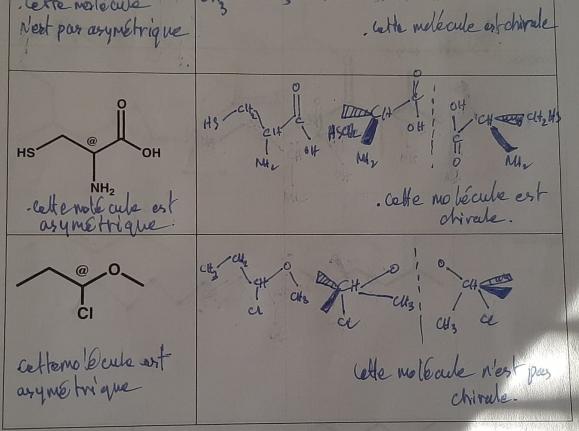 .Cette molécule
n'est pas asymétrique
3
.Cette molécule est chirale
HS
@
O
OH
NH2
.cette molécule est
asymétrique.
HS CH2 CH C O OH NH2
HSCH2 CH C O OH NH2
OH CH CH2HS C O NH2
.Cette molécule est
chirale.
@
O
Cl
cette molécule est
asymétrique
CH3 CH2 CH O CH3 Cl
CH O CH3 Cl
O CH CH3 Cl
Cette molécule n'est pas
chirale.